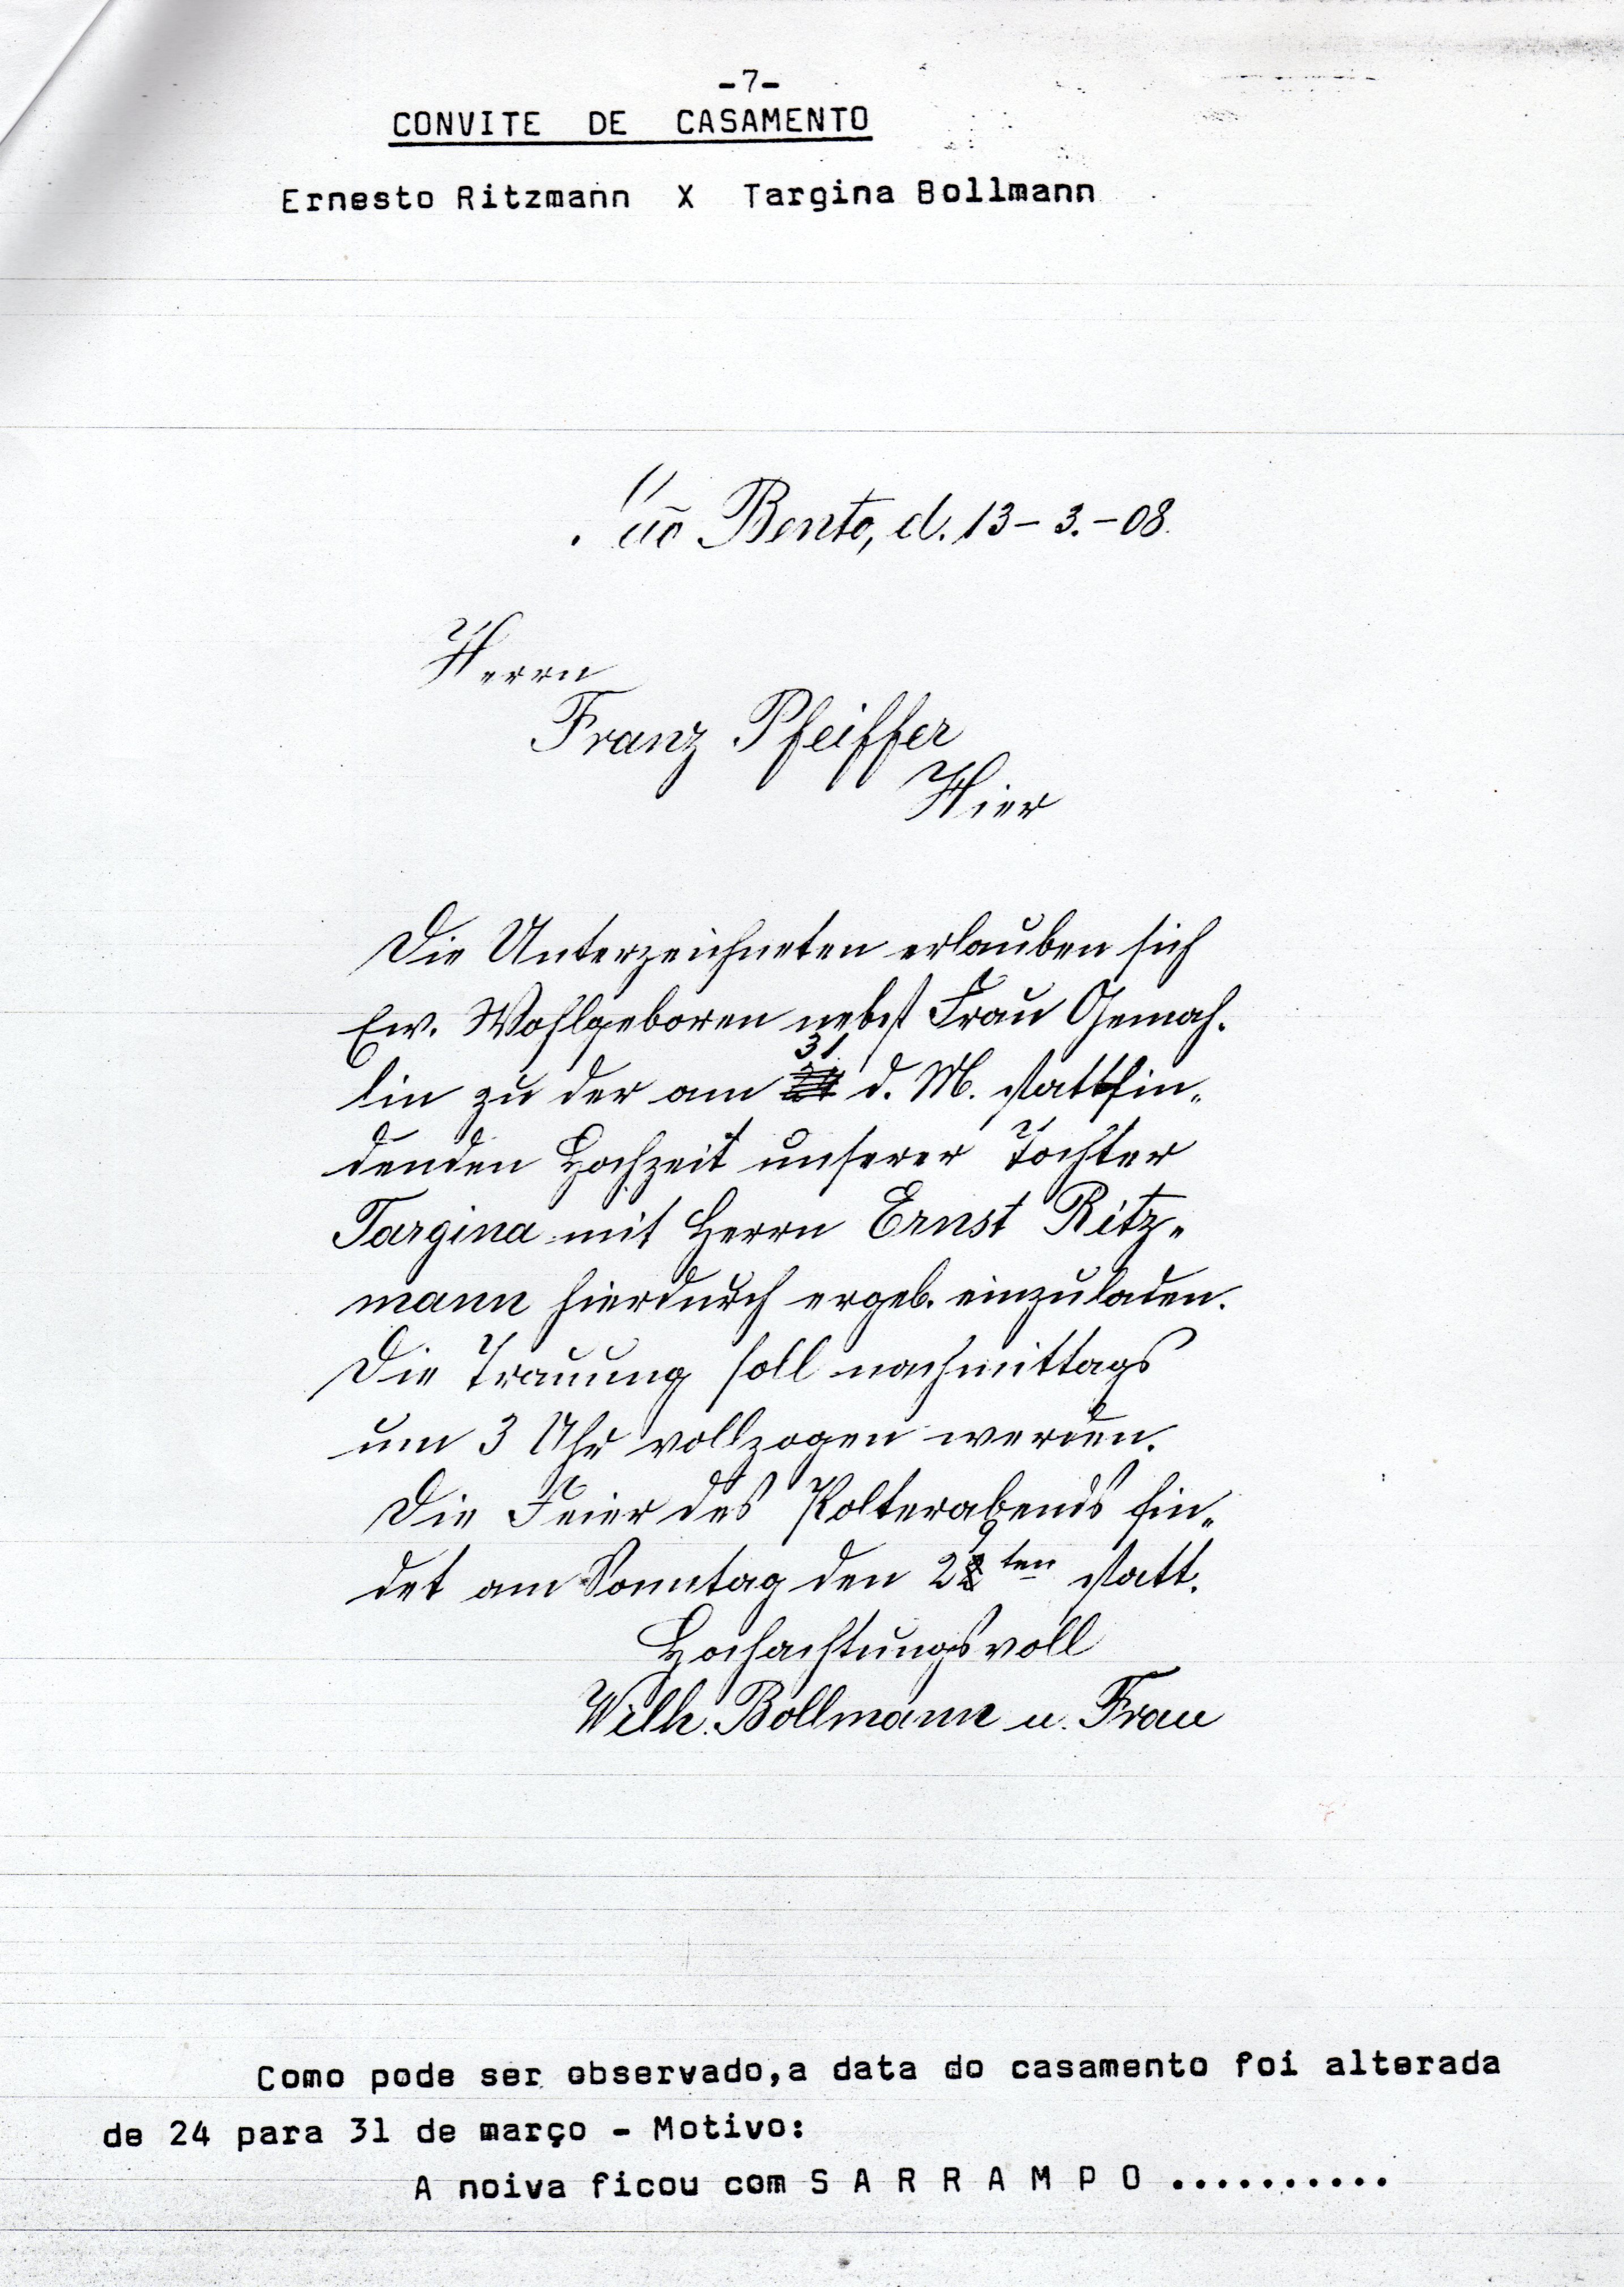 -7-
CONVITE DE CASAMENTO
Ernesto Ritzmann X Targina Bollmann
São Bento, d. 13-3.-08.
Herrn
Franz Pfeiffer
Hier
Die Unterzeichneten erlauben sich
Ew. Wohlgeboren nebst Frau Gemah-
31.
lin zu der am 24 d. M. stattfin-
denden Hochzeit unserer Tochter
Targina mit Herrn Ernst Ritz-
mann hierdurch ergeb. einzuladen.
Die Trauung soll nachmittags
um 3 Uhr vollzogen werden.
Die Feier des Polterabends fin-
det am Sonntag den 29ten statt.
Hochachtungsvoll
Wilh. Bollmann u. Frau
Como pode ser observado,a data do casamento foi alterada
de 24 para 31 de março - Motivo:
A noiva ficou com S A R R A M P O ..........